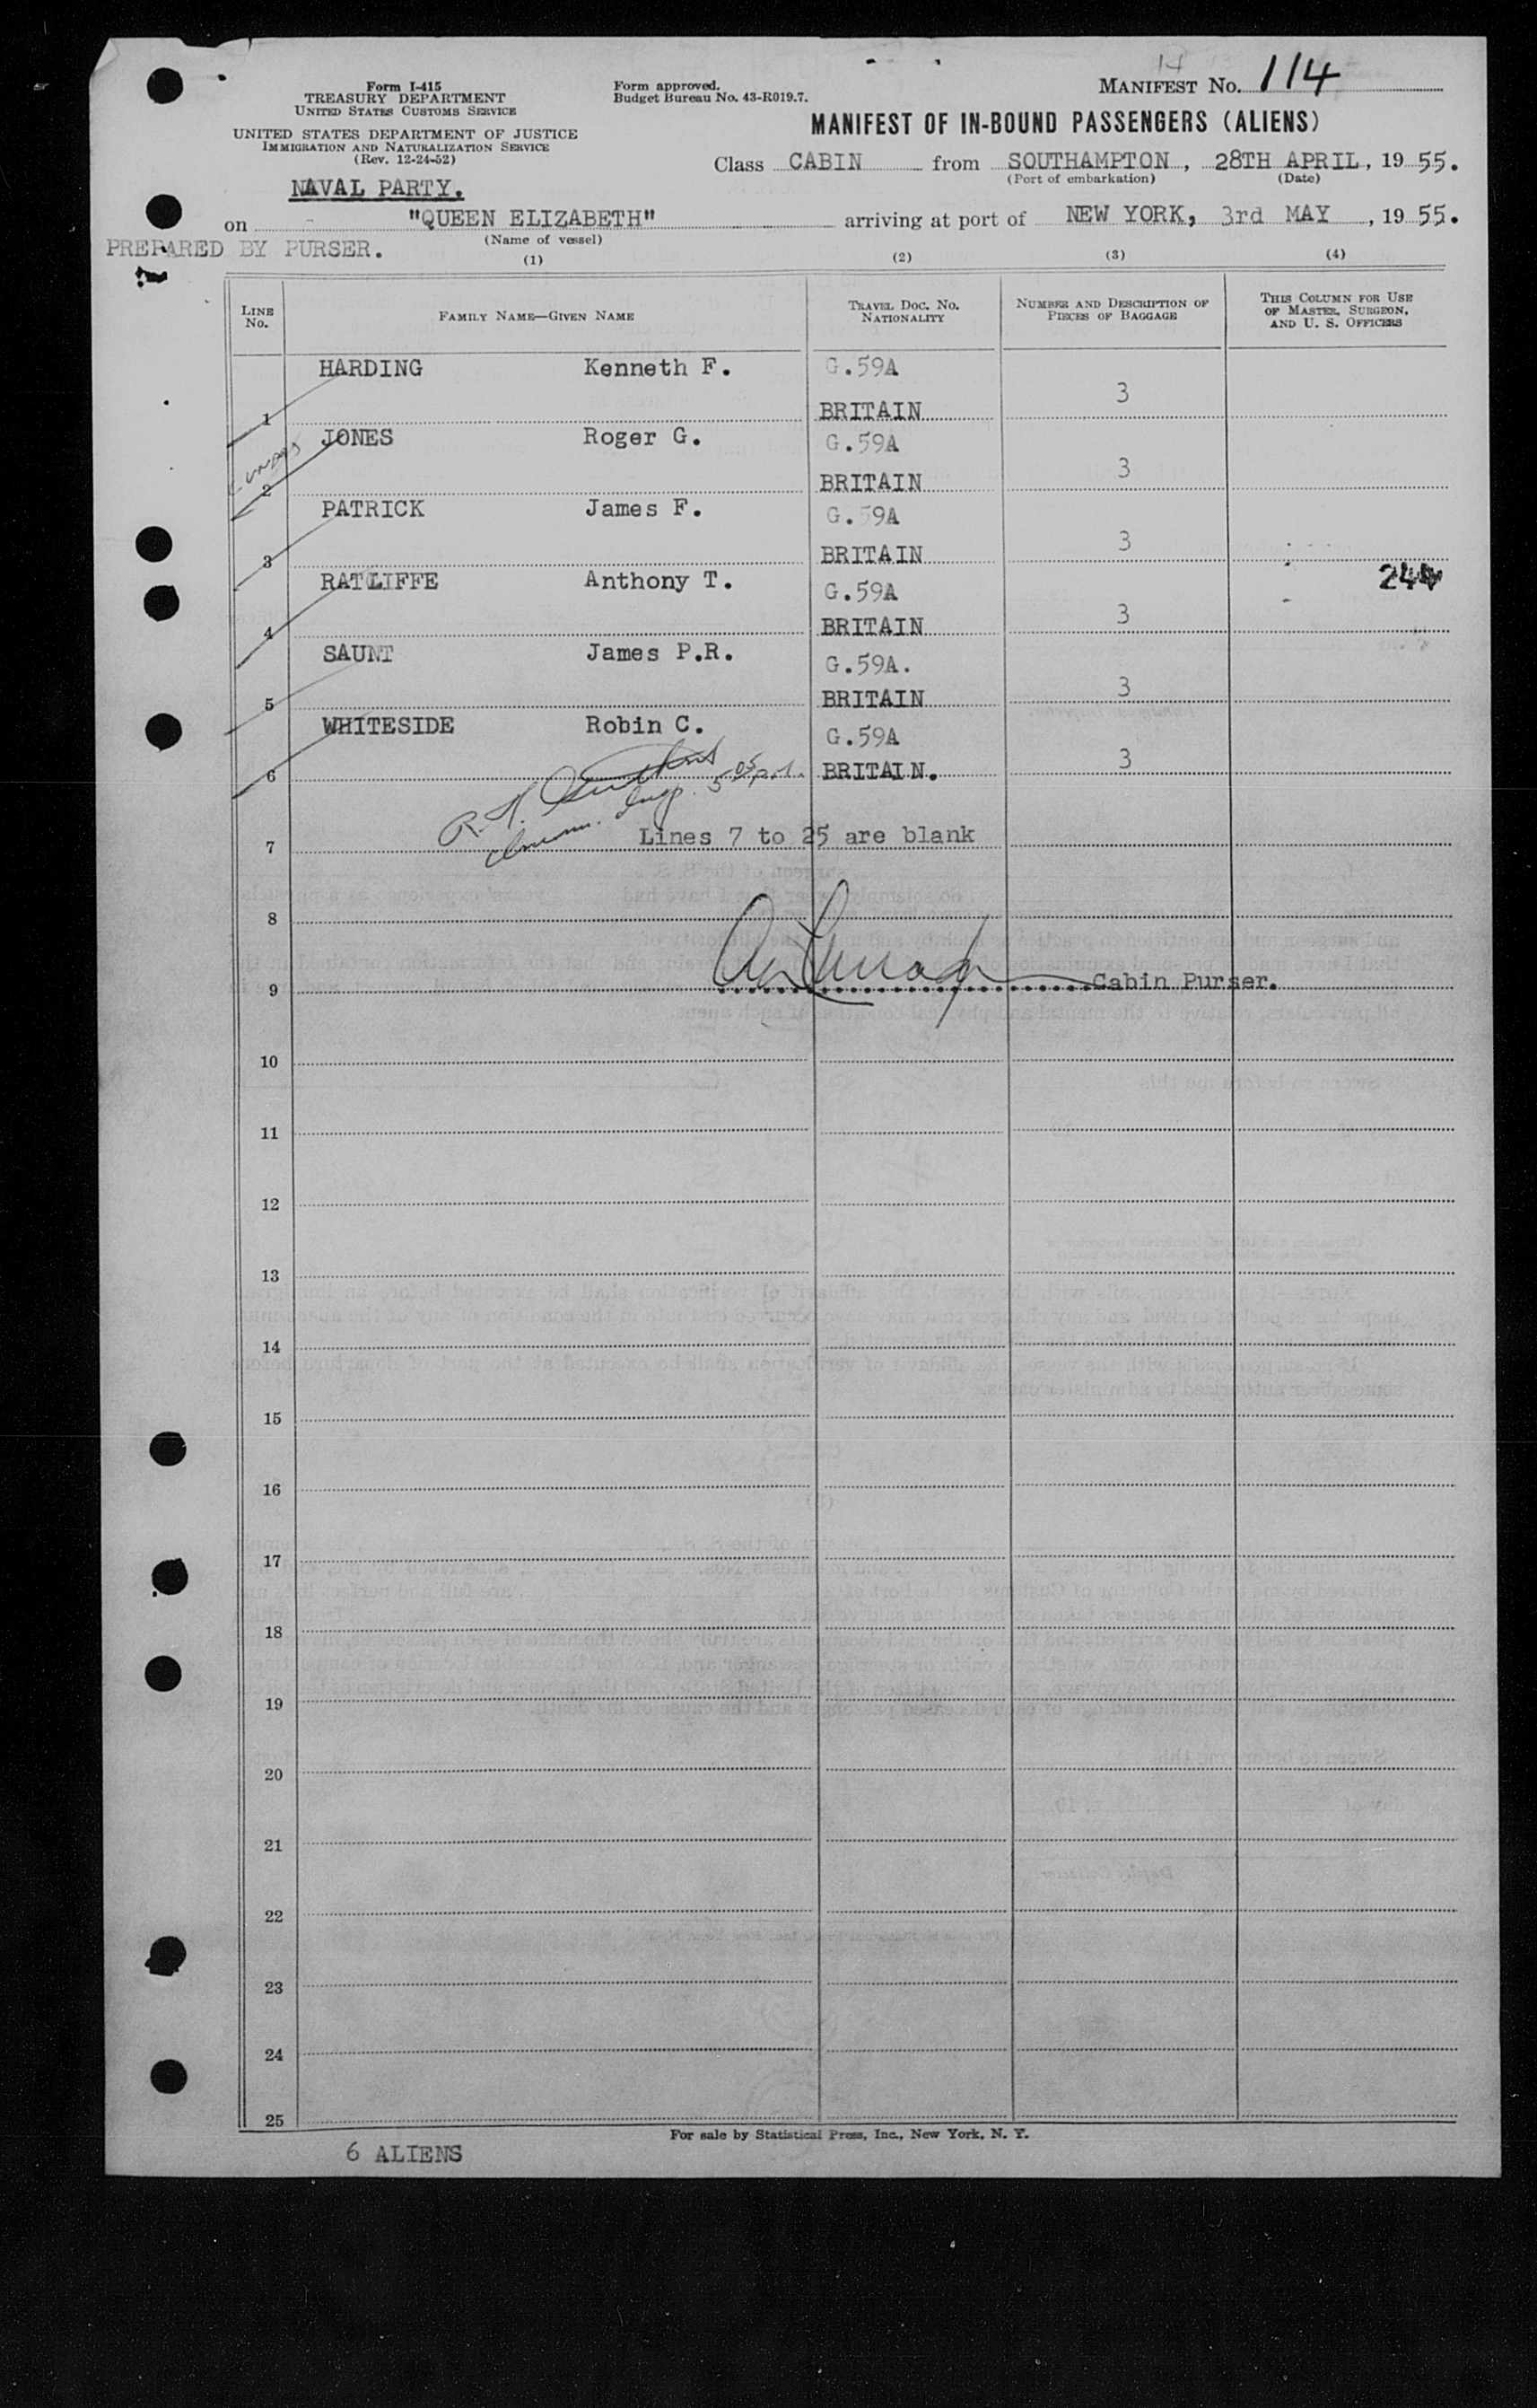 Form I-415
TREASURY DEPARTMENT
UNITED STATES CUSTOMS SERVICE
UNITED STATES DEPARTMENT OF JUSTICE
IMMIGRATION AND NATURALIZATION SERVICE
(Rev. 12-24-52)
Form approved.
Budget Bureau No. 43-R019.7.
14
MANIFEST No. 114
MANIFEST OF IN-BOUND PASSENGERS (ALIENS)
Class CABIN from SOUTHAMPTON, 28TH APRIL, 1955.
(Port of embarkation) (Date)
NAVAL PARTY.
on "QUEEN ELIZABETH" arriving at port of NEW YORK, 3rd MAY, 1955.
(Name of vessel)
PREPARED BY PURSER.
(1) (2) (3) (4)
LINE No. FAMILY NAME—GIVEN NAME TRAVEL DOC. No. NATIONALITY NUMBER AND DESCRIPTION OF PIECES OF BAGGAGE THIS COLUMN FOR USE OF MASTER, SURGEON, AND U. S. OFFICERS
HARDING Kenneth F. G.59A
1 BRITAIN 3
JONES Roger G. G.59A
2 BRITAIN 3
PATRICK James F. G.59A
3 BRITAIN 3
RATCLIFFE Anthony T. G.59A 244
4 BRITAIN 3
SAUNT James P.R. G.59A.
5 BRITAIN 3
WHITESIDE Robin C. G.59A
6 BRITAIN. 3
R. H.
Immn. Insp.
7 Lines 7 to 25 are blank
8
9 Cabin Purser.
10
11
12
13
14
15
16
17
18
19
20
21
22
23
24
25
For sale by Statistical Press, Inc., New York, N. Y.
6 ALIENS